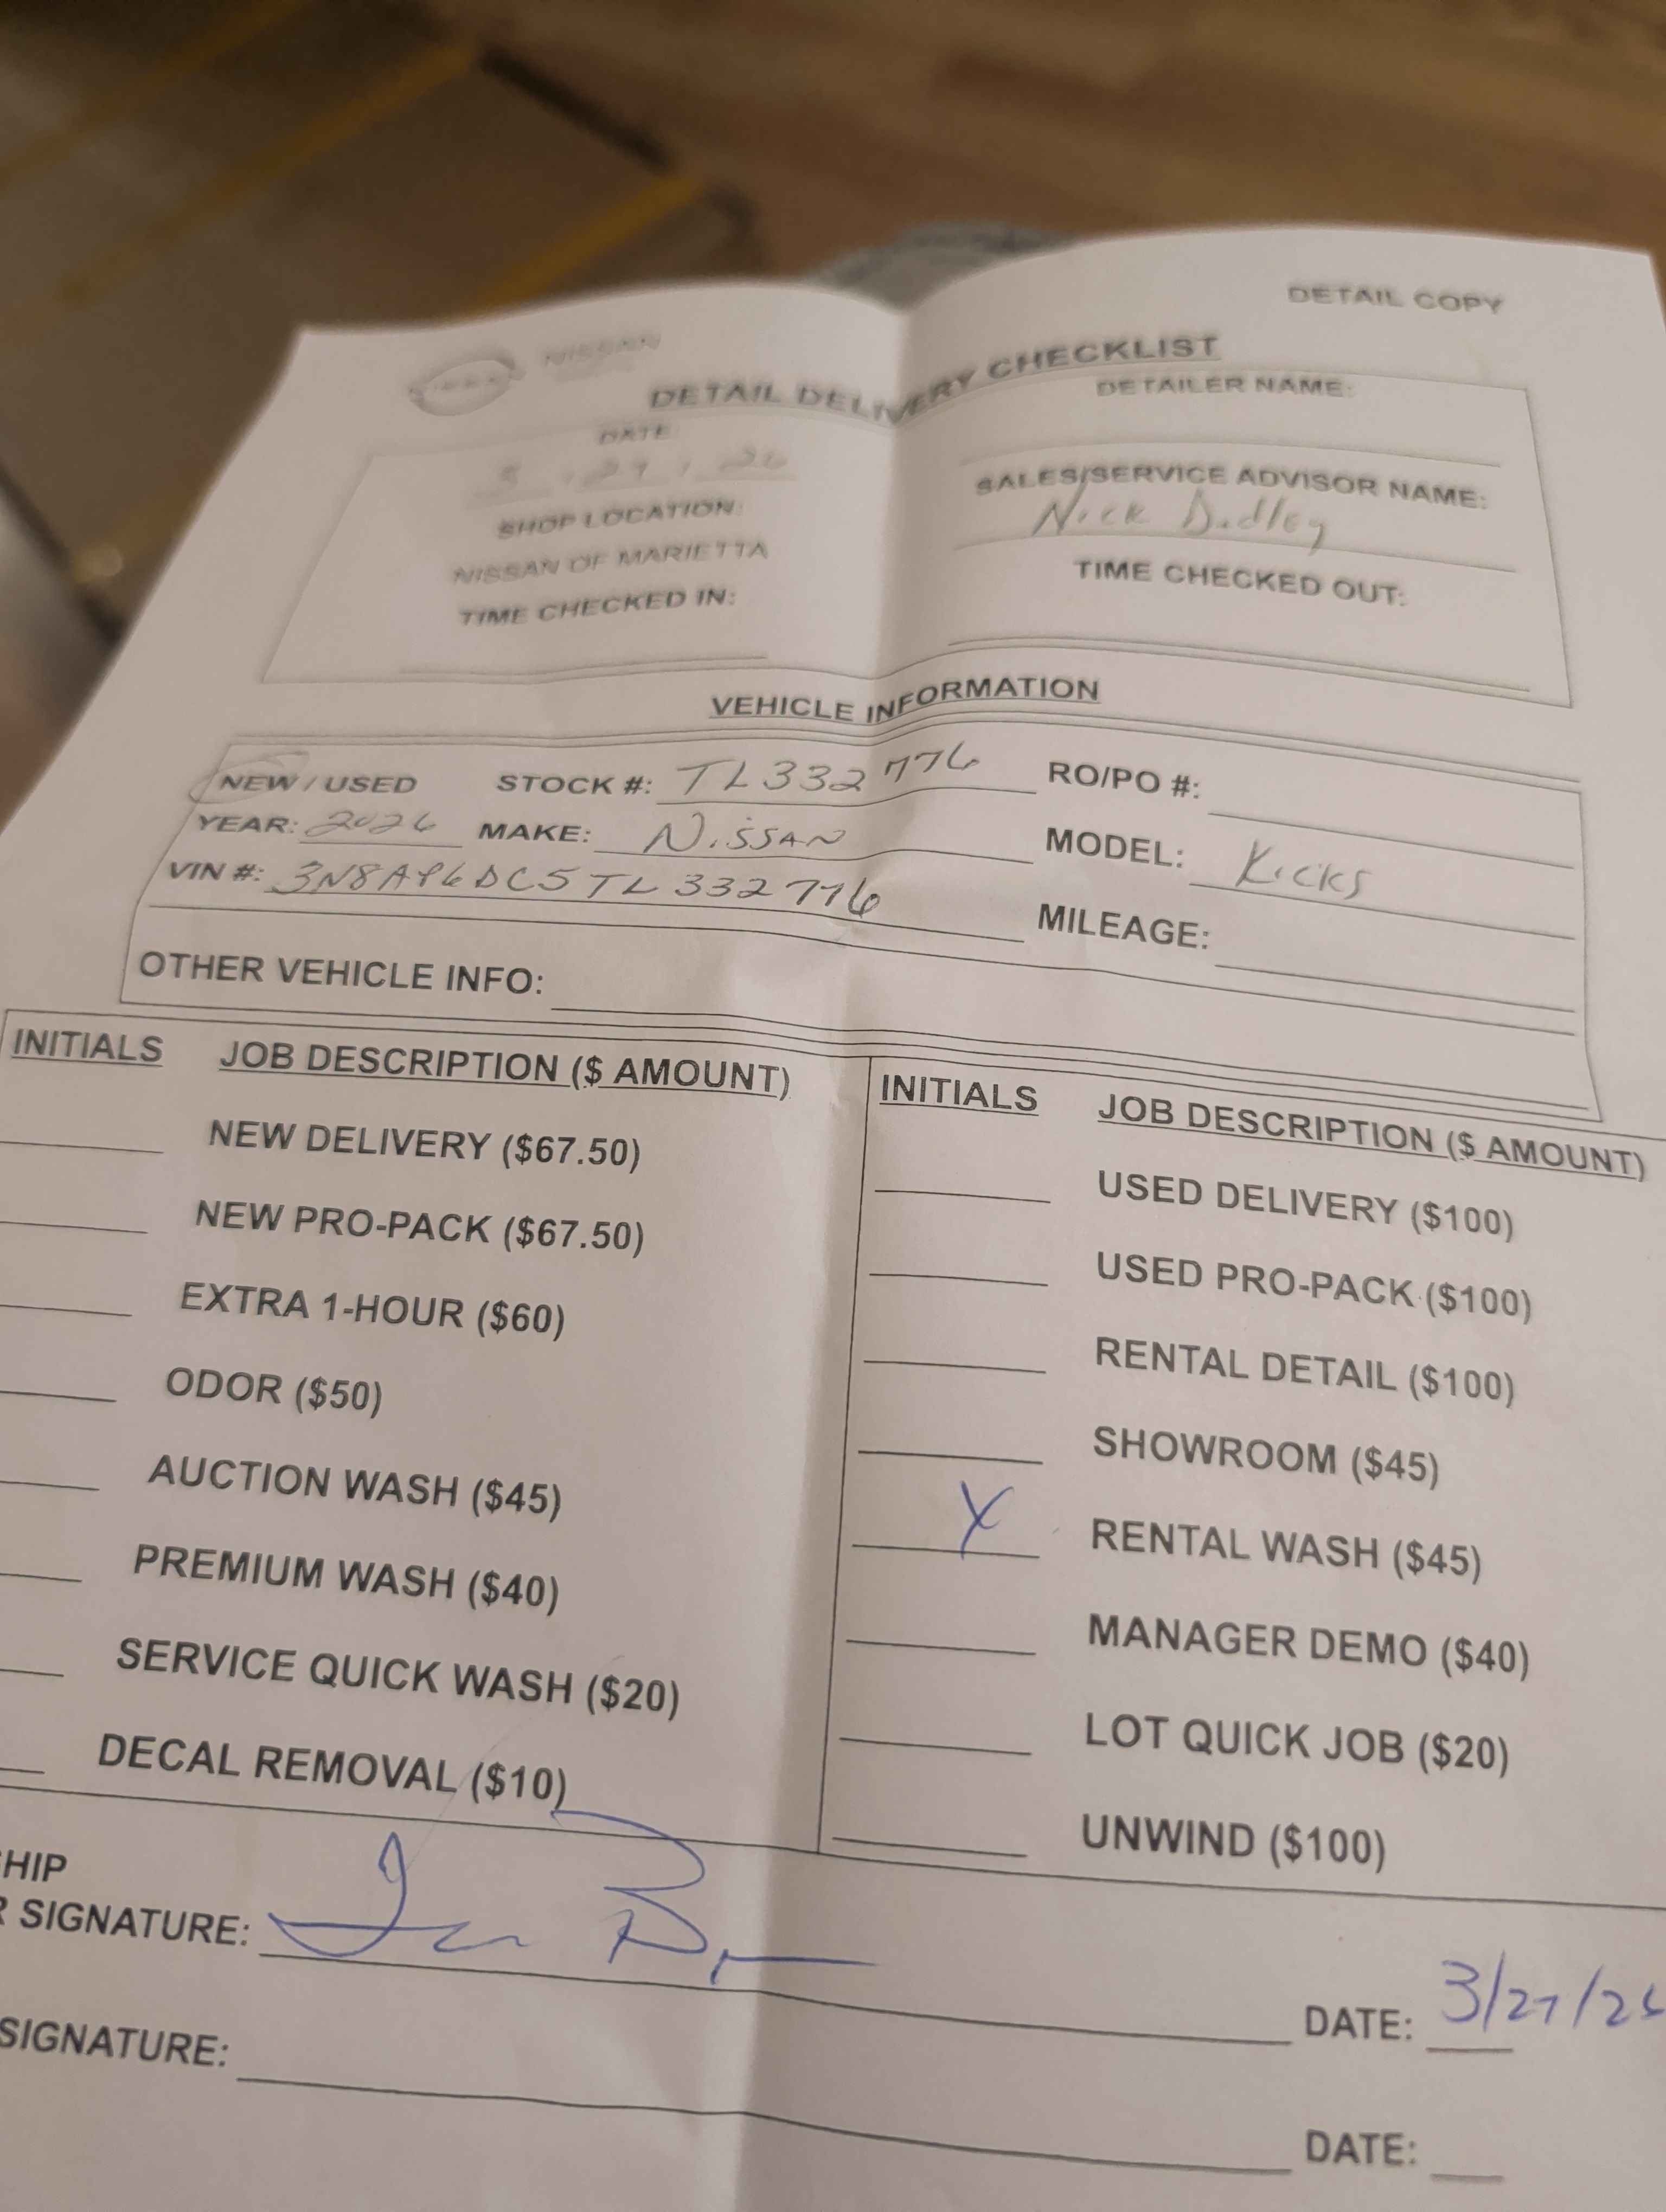 DETAIL COPY
NISSAN
DETAIL DELIVERY CHECKLIST
DATE
DETAILER NAME:
SHOP LOCATION:
NISSAN OF MARIETTA
SALES/SERVICE ADVISOR NAME:
Nick Dudley
TIME CHECKED IN:
TIME CHECKED OUT:
VEHICLE INFORMATION
NEW / USED STOCK #: TL332776 RO/PO #:
YEAR: 2026 MAKE: NISSAN MODEL: Kicks
VIN #: 3N8AP6DC5TL332776 MILEAGE:
OTHER VEHICLE INFO:
INITIALS JOB DESCRIPTION ($ AMOUNT)
NEW DELIVERY ($67.50)
NEW PRO-PACK ($67.50)
EXTRA 1-HOUR ($60)
ODOR ($50)
AUCTION WASH ($45)
PREMIUM WASH ($40)
SERVICE QUICK WASH ($20)
DECAL REMOVAL ($10)
INITIALS JOB DESCRIPTION ($ AMOUNT)
USED DELIVERY ($100)
USED PRO-PACK ($100)
RENTAL DETAIL ($100)
SHOWROOM ($45)
X RENTAL WASH ($45)
MANAGER DEMO ($40)
LOT QUICK JOB ($20)
UNWIND ($100)
HIP
R SIGNATURE: DATE: 3/27/26
SIGNATURE: DATE: